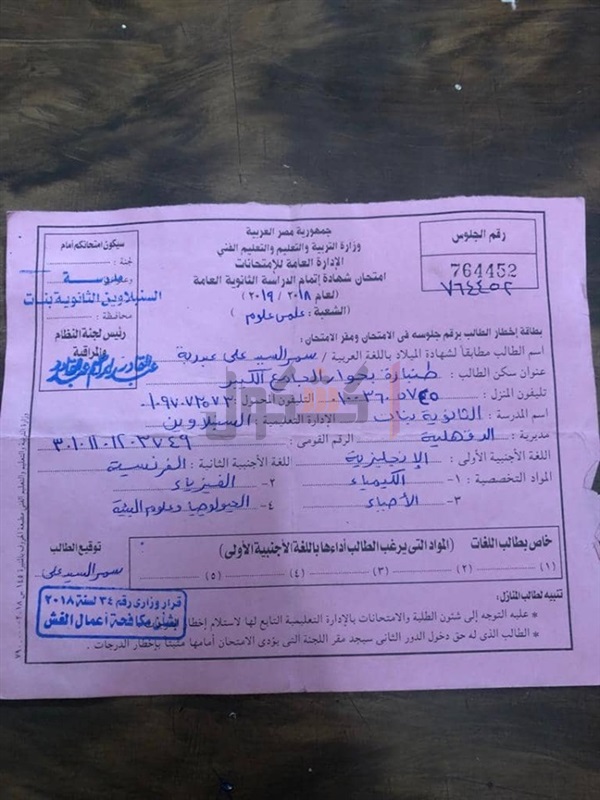 جمهورية مصر العربية
وزارة التربية والتعليم والتعليم الفني
الإدارة العامة للإمتحانات
امتحان شهادة إتمام الدراسة الثانوية العامة
(لعام ٢٠١٨ / ٢٠١٩)
(الشعبة: علمى علوم)
رقم الجلوس
764452
٧٦٤٤٥٢
سيكون امتحانكم أمام
لجنة :
مدرسة
السنبلاوين الثانوية بنات
محافظة :
رئيس لجنة النظام
والمراقبة
بطاقة إخطار الطالب برقم جلوسه فى الامتحان ومقر الامتحان:
اسم الطالب مطابقاً لشهادة الميلاد باللغة العربية / سمر السيد على
عنوان سكن الطالب : بجوار الجامع الكبير
تليفون المنزل : التليفون المحمول
اسم المدرسة : الثانوية بنات الإدارة التعليمية : السنبلاوين
مديرية : الدقهلية الرقم القومى : ٣٠١١٠١١٢٠٣٧٤٩
اللغة الأجنبية الأولى : الإنجليزية اللغة الأجنبية الثانية : الفرنسية
المواد التخصصية : ١- الكيمياء ٢- الفيزياء
٣- الأحياء ٤- الجيولوجيا وعلوم البيئة
خاص بطالب اللغات (المواد التى يرغب الطالب أداءها باللغة الأجنبية الأولى)
(١) (٢) (٣) (٤) (٥)
توقيع الطالب
سمر السيد على
تنبيه لطالب المنازل:
* عليه التوجه إلى شئون الطلبة والامتحانات بالإدارة التعليمية التابع لها لاستلام إخطار
* الطالب الذى له حق دخول الدور الثانى سيجد مقر اللجنة التى يؤدى الامتحان أمامها مثبتاً بإخطار الدرجات.
قرار وزارى رقم ٣٤ لسنة ٢٠١٨
بشأن مكافحة أعمال الغش